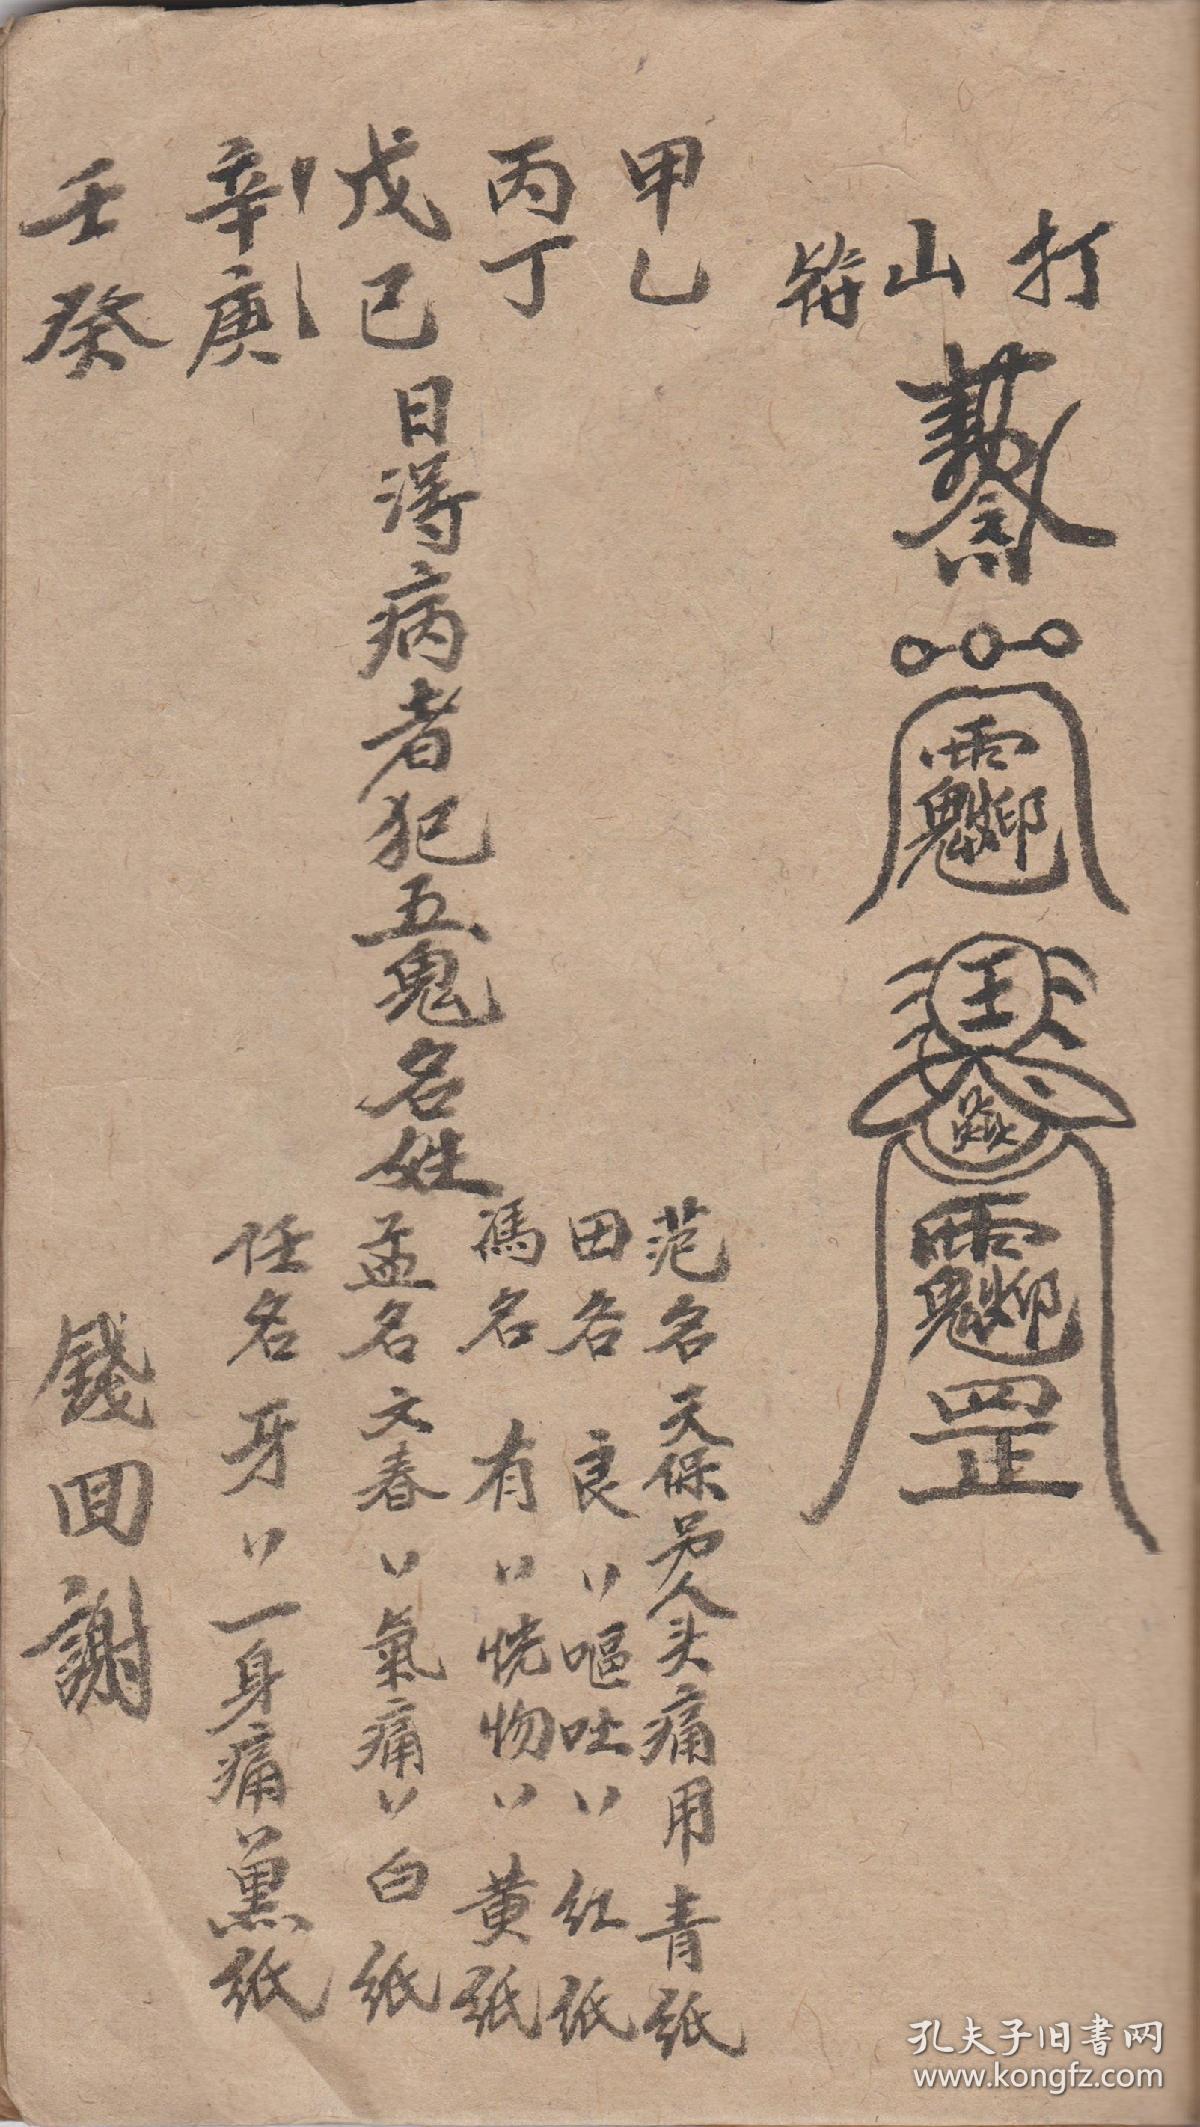 打山符
罡
王
甲乙
丙丁
戊己
辛庚
壬癸
日得病者犯五鬼名姓
范名天保另人头痛用青纸
田名良〃嘔吐〃红纸
馮名有〃恍惚〃黄纸
孟名文春〃氣痛〃白纸
任名牙〃一身痛〃黑纸
錢回謝
孔夫子旧书网
www.kongfz.com